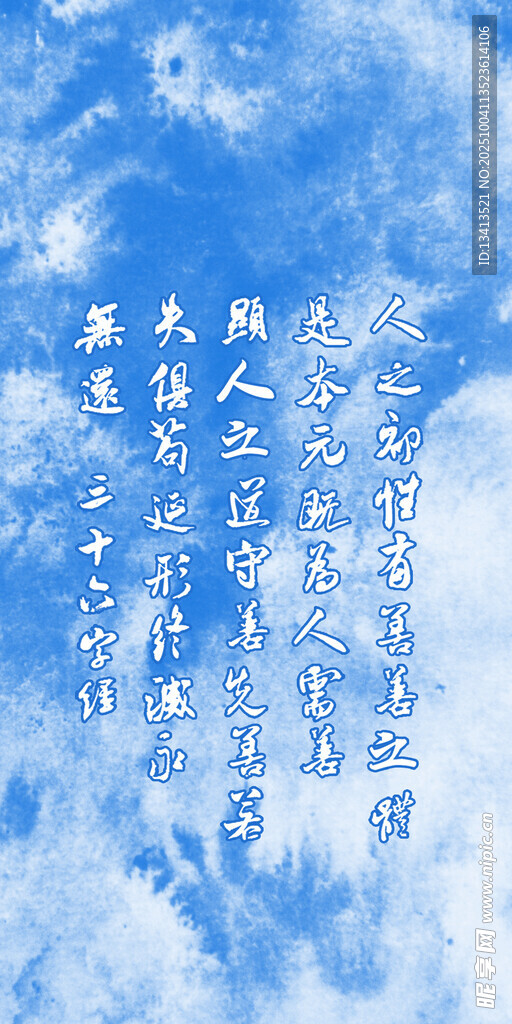 人之初性有善善之體
是本元既為人需善
顯人之道守善先善若
失俱苟延形終滅永
無還 三十六字經
ID:13413521 NO:20251004113523614106
昵享网 www.nipic.cn